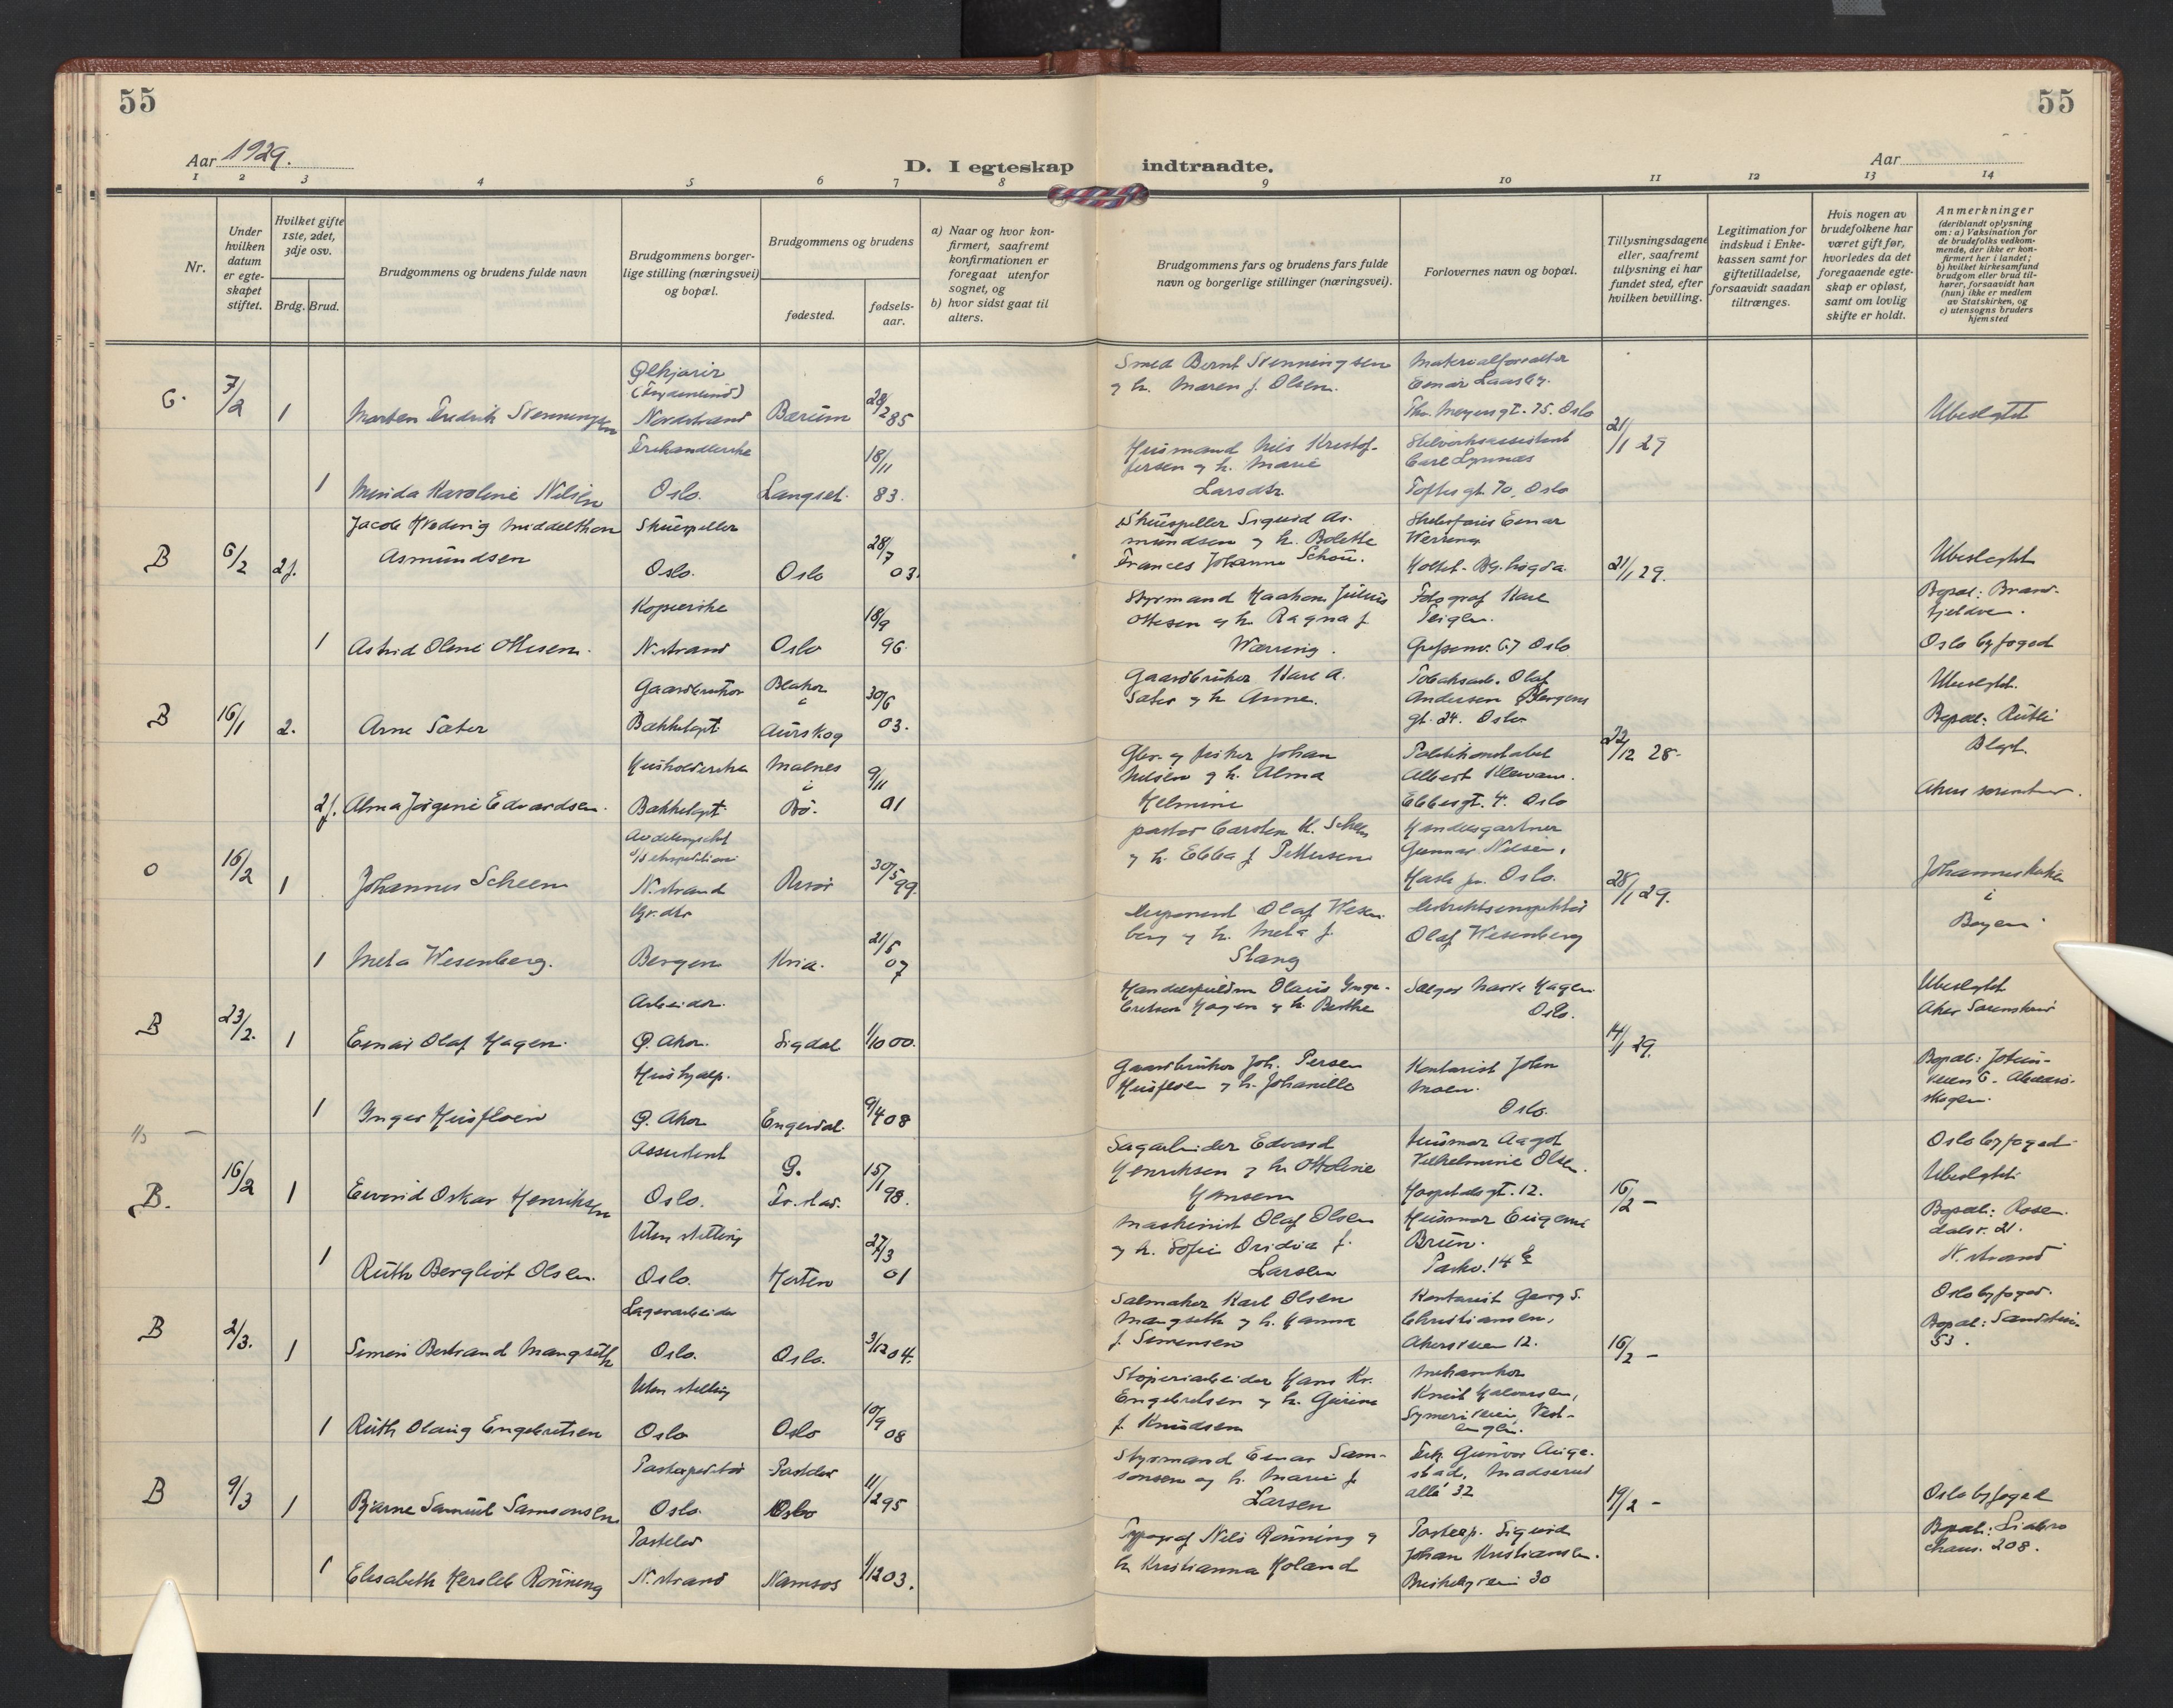 55
55
Aar 1929.
D. I egteskap indtraadte.
Aar
1 2 3 4 5 6 7 8 9 10 11 12 13 14
Nr.
Under
hvilken
datum
er egte-
skapet
stiftet.
Hvilket gifte
1ste, 2det,
3dje osv.
Brdg. Brud.
Brudgommens og brudens fulde navn
Brudgommens borger-
lige stilling (næringsvei)
og bopæl.
Brudgommens og brudens
fødested.
fødsels-
aar.
a) Naar og hvor kon-
firmert, saafremt
konfirmationen er
foregaat utenfor
sognet, og
b) hvor sidst gaat til
alters.
Brudgommens fars og brudens fars fulde
navn og borgerlige stillinger (næringsvei).
Forlovernes navn og bopæl.
Tillysningsdagene
eller, saafremt
tillysning ei har
fundet sted, efter
hvilken bevilling.
Legitimation for
indskud i Enke-
kassen samt for
giftetilladelse,
forsaavidt saadan
tiltrænges.
Hvis nogen av
brudefolkene har
været gift før,
hvorledes da det
foregaaende egte-
skap er opløst,
samt om lovlig
skifte er holdt.
Anmerkninger
(deriblandt oplysning
om: a) Vaksination for
de brudefolks vedkom-
mende, der ikke er kon-
firmert her i landet;
b) hvilket kirkesamfund
brudgom eller brud til-
hører, forsaavidt han
(hun) ikke er medlem
av Statskirken, og
c) utensogns bruders
hjemsted
G. 7/2 1 Morten Fredrik Stenningsen
Nordstrand
Bærum
28/2 85
Smed Bernt Stenningsen
og h. Maren f. Olsen.
Materialforvalter
Einar Laasby.
Thv. Meyersgt. 75. Oslo
21/1 29
Ubeslegtet
1 Minda Karoline Nilsen
Oslo.
Langset.
18/11 83.
Husmand Nils Kristof-
fersen og h. Marie
Larsdtr.
Carl Lynnæs
Toftesgt. 70, Oslo
B 6/2 2f. Jacob Hvoderig Middelthon
Asmundsen
Skuespiller
Oslo.
Oslo
28/7 03.
Skuespiller Sigurd As-
mundsen og h. Bolette
Frances Johanne Schou.
Einar
Werring
21/1 29.
Ubeslegtet
1 Astrid Olene Ottesen.
Kopierske
N.strand
Oslo
18/9 96.
Styrmand Haakon Julius
Ottesen og h. Ragna f.
Wærring.
Fotograf Karl
Teigen.
Grefsenv. 67 Oslo
Bopæl: Brand-
fjeldvn.
Oslo byfoged
B 16/1 2. Arne Sæter
Gaardbruker
Bækkelagt.
Blaker
i
Aurskog
30/6 03.
Gaardbruker Karl A.
Sæter og h. Anne.
Olaf
Andersen
gt. 24. Oslo
22/12 28-
Ubeslegtet.
2f. Alma Jørgine Edvardsen.
Husholderske
Bækkelagt.
Malnes
i
Bø.
9/11 01
fisker Johan
Nilsen og h. Alma
Helmine
Politikonstabel
Albert
Ebbesgt. 4. Oslo
O 16/2 1 Johannes Scheen
N.strand
Risør
30/5 99.
pastor Carsten H. Scheen
og h. Ebba f. Pettersen
Handelsgartner
Gunnar Nilsen,
Oslo.
28/1 29.
Johanneskirken
i
Bergen
1 Meta Wesenberg.
Bergen
Kria.
21/5 07
Disponent Olaf Wesen-
berg og h. Meta f.
Stang
Olaf Wesenberg
B 23/2. 1 Einar Olaf Hagen.
Arbeider.
Ø. Aker.
Sigdal
1/10 00.
Olaus Inge-
bretsen Hagen og h. Berthe
Hagen
Oslo.
14/1 29.
Ubeslegtet
1 Inger Husfloen
Hushjælp.
Ø. Aker
Engerdal.
9/4 08
Gaardbruker Joh. Persen
Husfloen og h. Johanille
Kontorist John
Moen.
Oslo.
B. 16/2 1 Eivind Oskar Henriksen
Assistent
Oslo.
15/1 98.
Sagarbeider Edvard
Henriksen og h. Ottoline
Hansen
Husmor Aagot
Vilhelmine Olsen.
Hospitalsgt. 12.
16/2 -
Oslo byfoged
Ubeslegtet
1 Ruth Bergliot Olsen.
Uten stilling
Oslo.
Horten
27/3 01
Maskinist Olaf Olsen
og h. Sofie Oridia f.
Larsen
Husmor Eugenie
Brun.
Parkv. 14
Bopæl: Rosen-
dalsv. 21.
N.strand
B 2/3. 1 Simen Bertrand Mangseth
Lagerarbeider
Oslo.
Oslo.
3/12 04.
Salmaker Karl Olsen
Mangseth og h. Hanna
f. Simensen
Kontorist Georg S.
Christiansen,
Akersveien 12.
16/2 -
Oslo byfoged.
53.
1 Ruth Olaug Engebretsen
Uten stilling
Oslo
Oslo
10/9 08
Støperiarbeider Hans Kr.
Engebretsen og h. Gurine
f. Knudsen
Mekaniker
Knut Halvorsen,
B 9/3 1 Bjarne Samuel Samsonsen
Postexpeditør
Oslo.
Oslo
11/2 95
Styrmand Einar Sam-
sonsen og h. Marie f.
Larsen
Frk. Gunvor Auge-
stad, Madserud
allé 32
19/2 -
Oslo byfoged
1 Elisabeth Hersleb Rønning
N.strand
Namsos
1/12 03.
Typograf Nils Rønning og
h. Kristianna Holand
Postexp. Sigurd
Johan Kristiansen.
Briskebyveien 30
Bopæl: Liabro
chaus. 208.